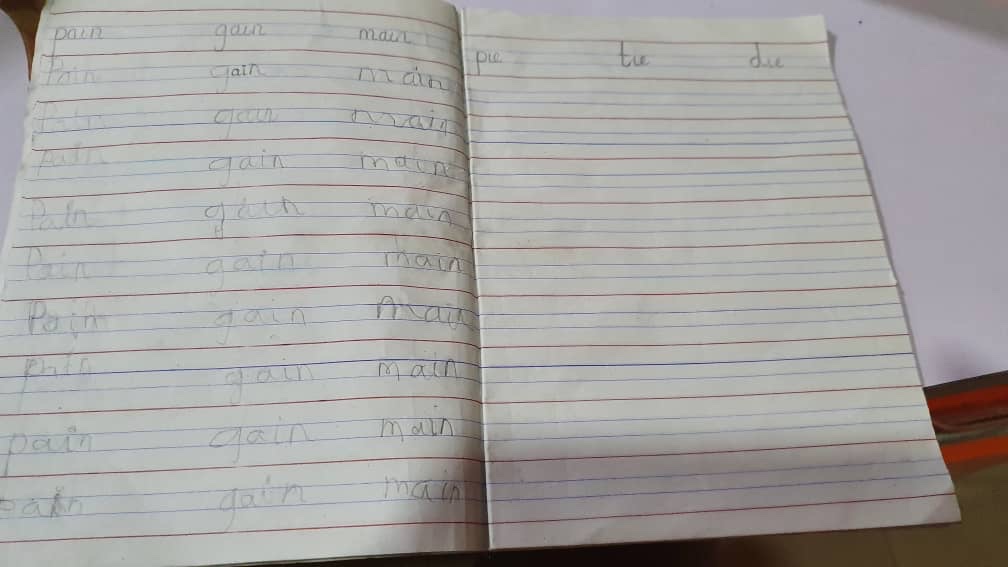 pain gain main
Pain gain main
Pain gain main
Pain gain main
Pain gain main
Pain gain main
Pain gain main
pain gain main
pain gain main
pain gain main
pie tie die